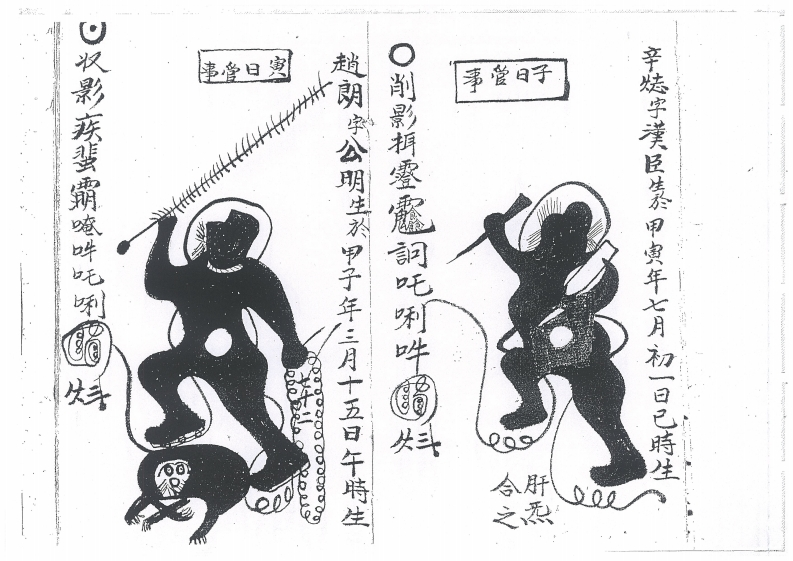 辛 字漢臣生於甲寅年七月初一日巳時生
子日管事
肝炁
合之
削影 吒唎吽
趙朗字公明生於甲子年三月十五日午時生
寅日管事
七十二
收影疾 霸唵吽吒唎